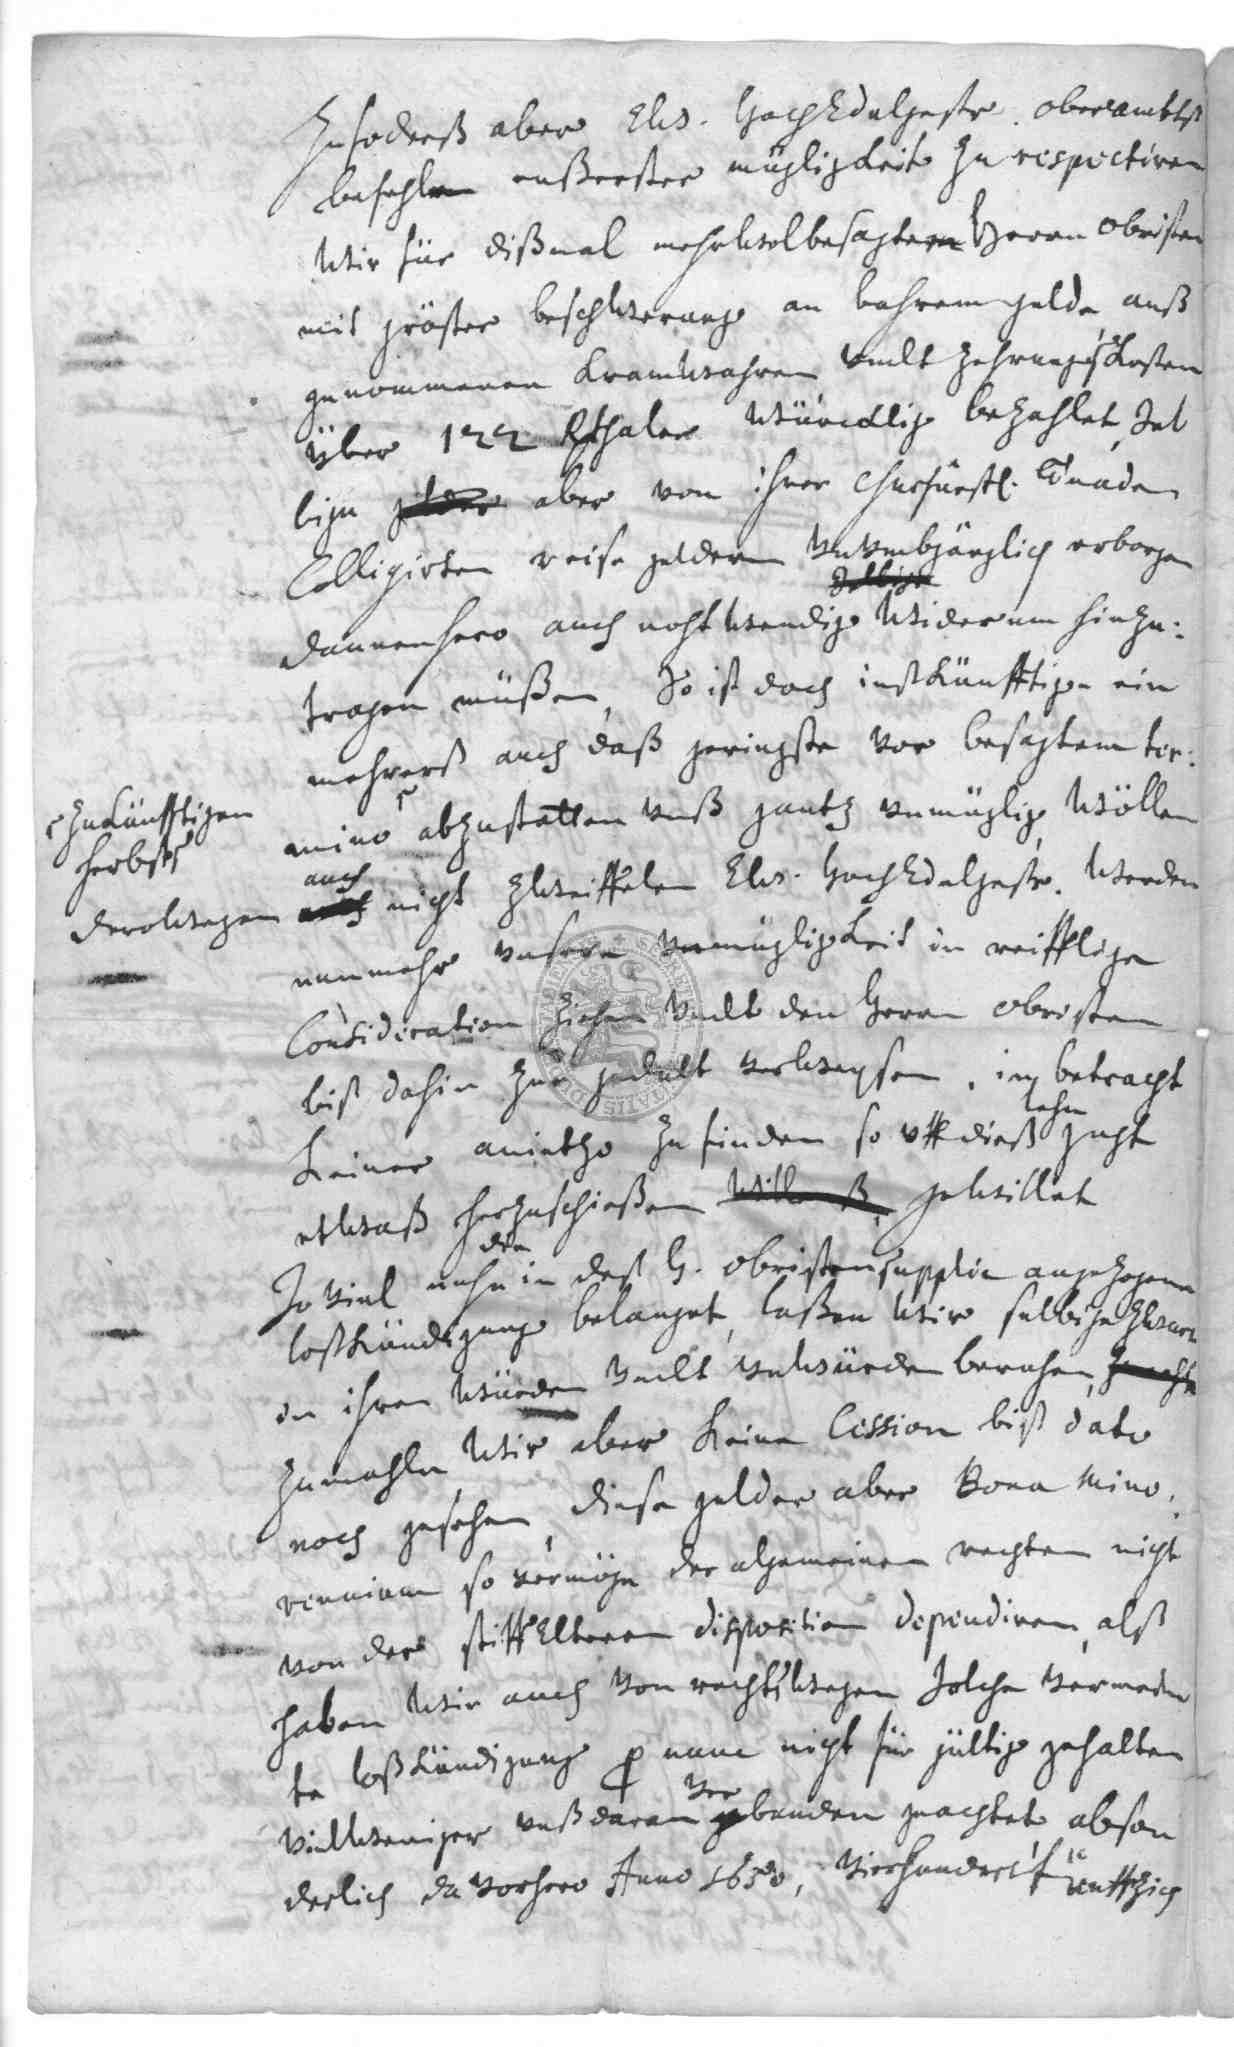 Zufoderß aber Ew. HochEdelgestr. oberambtß
befehlen eußerster mügligkeit zu respectiren
Wir für dißmal mehrwolbesagtem Herrn Obristen
mit gröster beschwerung an bahrem gelde auß
genommenen kramwahren undt zehrungs kosten
über 122 Rthaler würcklig bezahlet, sel
bige gelder aber von ihrer Churfürstl. Gnaden
Colligirten reise geldern unumbgänglich erborgen
selbige
dannenhero auch nohtwendig widerum hinzu:
tragen müßen, So ist doch inskünfftige ein
mehrerß auch daß geringste vor besagtem ter:
zukünfftigen
herbsts
mino abzustatten unß gantz unmüglig, Wöllen
auch
derowegen auch nicht zweiffelen Ew. HochEdelgestr. werden
nunmehr unsere unmügligkeit in reifflige
Consideration ziehen undt den Herrn Obristen
biß dahin zur gedult verweysen, in betracht
keiner anietzo zu finden so uff dieß
etwaß herzuschießen willenß, gewillet
die
So viel nuhn in deß H. Obristen supplic angezogene
loßkündigung belanget, laßen wir selbige zwarn
in ihren würden undt unwürden beruhen,
zumahln wir aber keine Cession biß dato
noch gesehen, diese gelder aber Bona mino:
rennium so vermöge der algemeinen rechten nicht
von der stiffEltern disposition dependiren, alß
haben wir auch von rechtswegen solche vermein
te loßkündigung pro nunc nicht für gültig gehalten
ver
vielweniger unß daran gebunden geachtet, abson
derlich da vorhero Anno 1630, vierhundert fünffzig